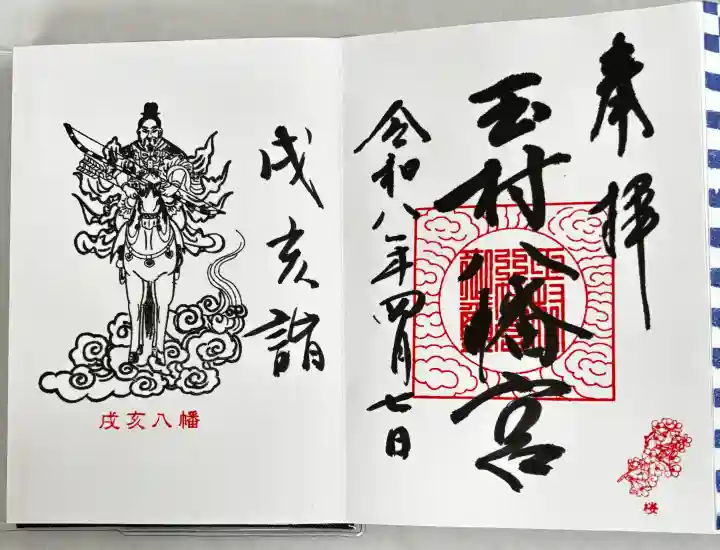 奉拝
玉村八幡宮
令和八年四月七日
戌亥詣
戌亥八幡
桜